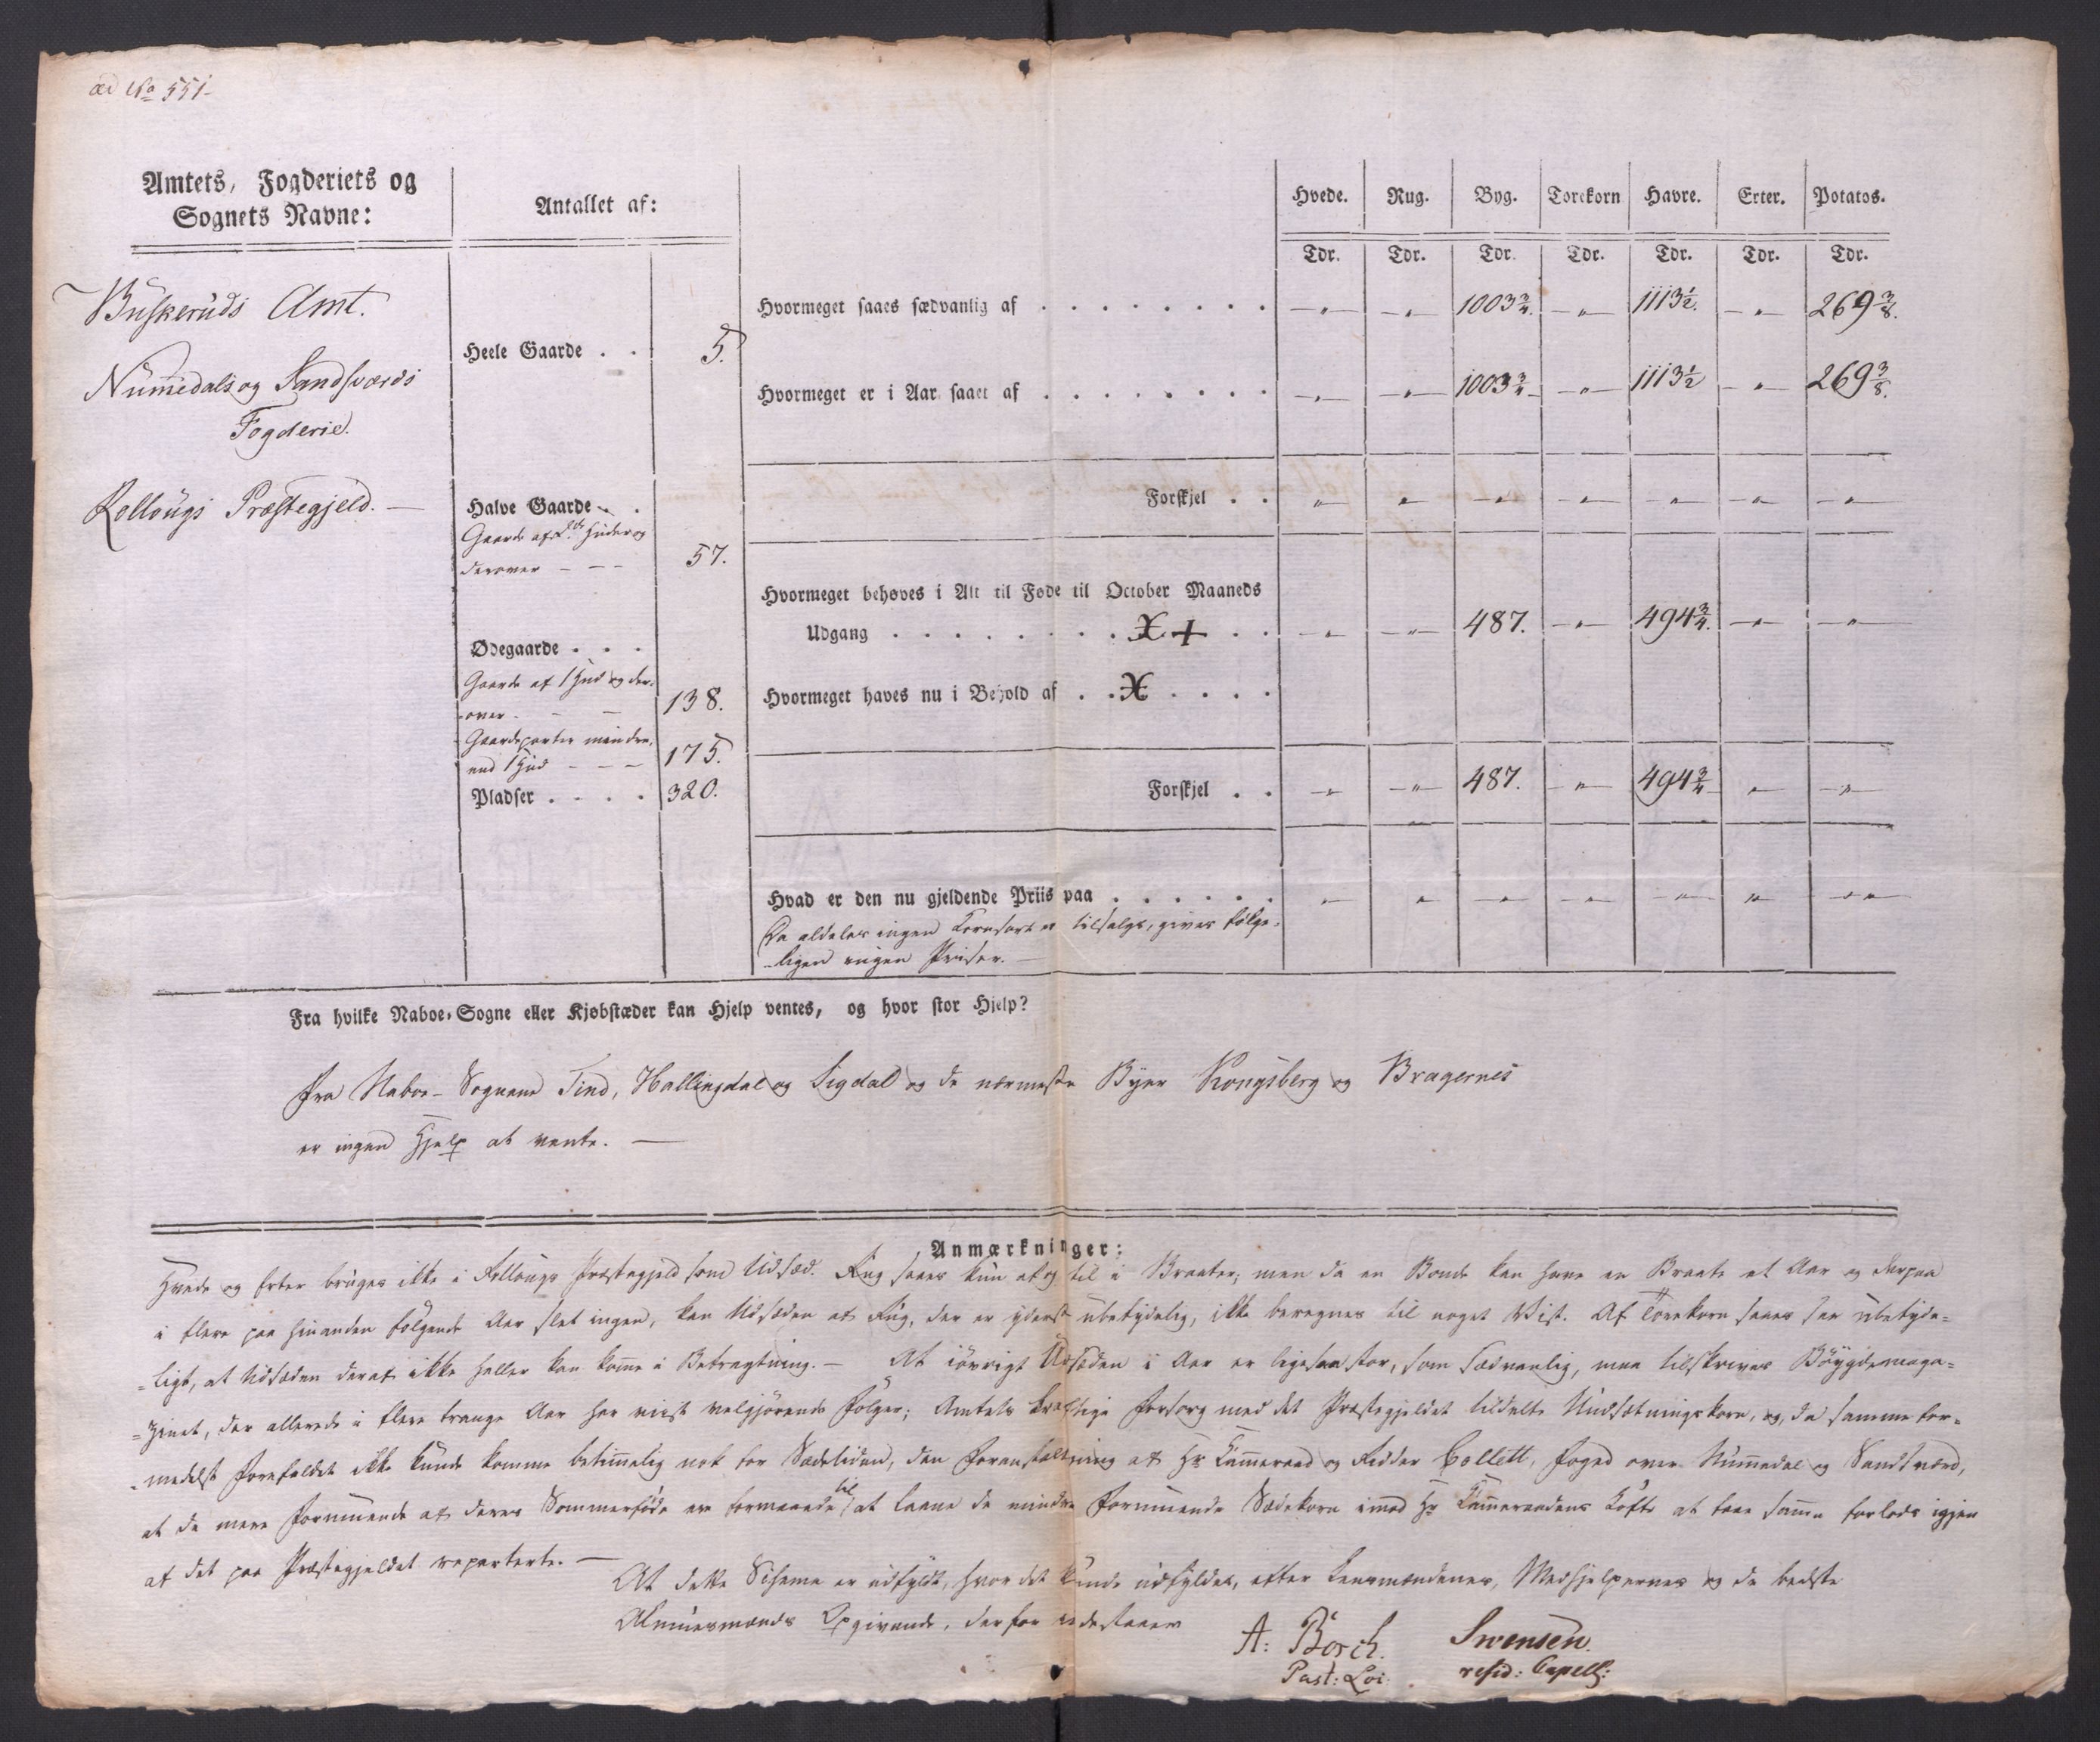 ad No 551.
Amtets, Fogderiets og
Sognets Navne:
Antallet af:
Hvede. Rug. Byg. Torekorn Havre. Erter. Potatos.
Tdr. Tdr. Tdr. Tdr. Tdr. Tdr. Tdr.
Buskeruds Amt.
Numedals og Sandsværds
Fogderie.
Rollougs Præstegjeld. —
Heele Gaarde . . 5.
Halve Gaarde . .
Gaarde af 2de Huder og
derover - - - 57.
Ødegaarde . . .
Gaarde af 1 Hud og der-
over - - 138.
Gaardeparter mindre
end 1 Hud - - - 175.
Pladser . . . . 320.
Hvormeget saaes sædvanlig af . . . . . . . . —„— —„— 1003¾. —„— 1113½. —„— 269⅜.
Hvormeget er i Aar saaet af . . . . . . . . —„— —„— 1003¾ —„— 1113½ —„— 269⅜.
Forskjel . . „ „ —„— —„— —„— —„— —„—
Hvormeget behøves i Alt til Føde til October Maaneds
Udgang . . . . . . . . X + . . —„— —„— 487. —„— 494¾. —„— —„—
Hvormeget haves nu i Behold af . . X . . . .
Forskjel . . —„— —„— 487. —„— 494¾ „ —„—
Hvad er den nu gjeldende Priis paa . . . . . . „ „ —„— —„— —„— „ —„—
Da aldeles ingen Kornsort er tilsalgs, gives følge-
-ligen ingen Priser. —
Fra hvilke Naboe-Sogne eller Kjøbstæder kan Hjelp ventes, og hvor stor Hjelp?
Fra Naboe-Sognene Tind, Hallingdal og Sigdal og de nærmeste Byer Kongsberg og Bragernes
er ingen Hjelp at vente. —
Anmærkninger:
Hvede og Erter bruges ikke i Rollougs Præstegjeld som Udsæd. Rug saaes kun af og til i Braater; men da en Bonde kan have en Braate et Aar og derpaa
i flere paa hinanden følgende Aar slet ingen, kan Udsæden af Rug, der er yderst ubetydelig, ikke beregnes til noget Vist. Af Torekorn saaes saa ubetyde=
=ligt, at Udsæden deraf ikke heller kan komme i Betragtning. — At iøvrigt Udsæden i Aar er ligesaa stor, som sædvanlig, maa tilskrives Bøygdemaga=
=zinet, der allerede i flere trange Aar har viist velgjørende Følger; Amtets kraftige Forsorg med det Præstegjeldet tildelte Undsætningskorn, og, da samme for=
=medelst Forefaldet ikke kunde komme betimmelig nok for Sædetiden, den Foranstaltning af Hr Kammeraad og Ridder Collett, Foged over Nummedal og Sandsværd,
at de mere Formuende af deres Sommerføde ere formaaede til at laane de mindre Formuende Sædekorn imod Hr Kammeraadens Løfte at faae samme forlods igjen
af det paa Præstegjeldet reparterte. —
At dette Schema er udfyldt, hvor det kunde udfyldes, efter Lensmændenes, Medhjelpernes og de bedste
Almuesmænds Opgivende, derfor indestaaer
A: Borch. Swensen.
Past: Loi. resid: Capell: